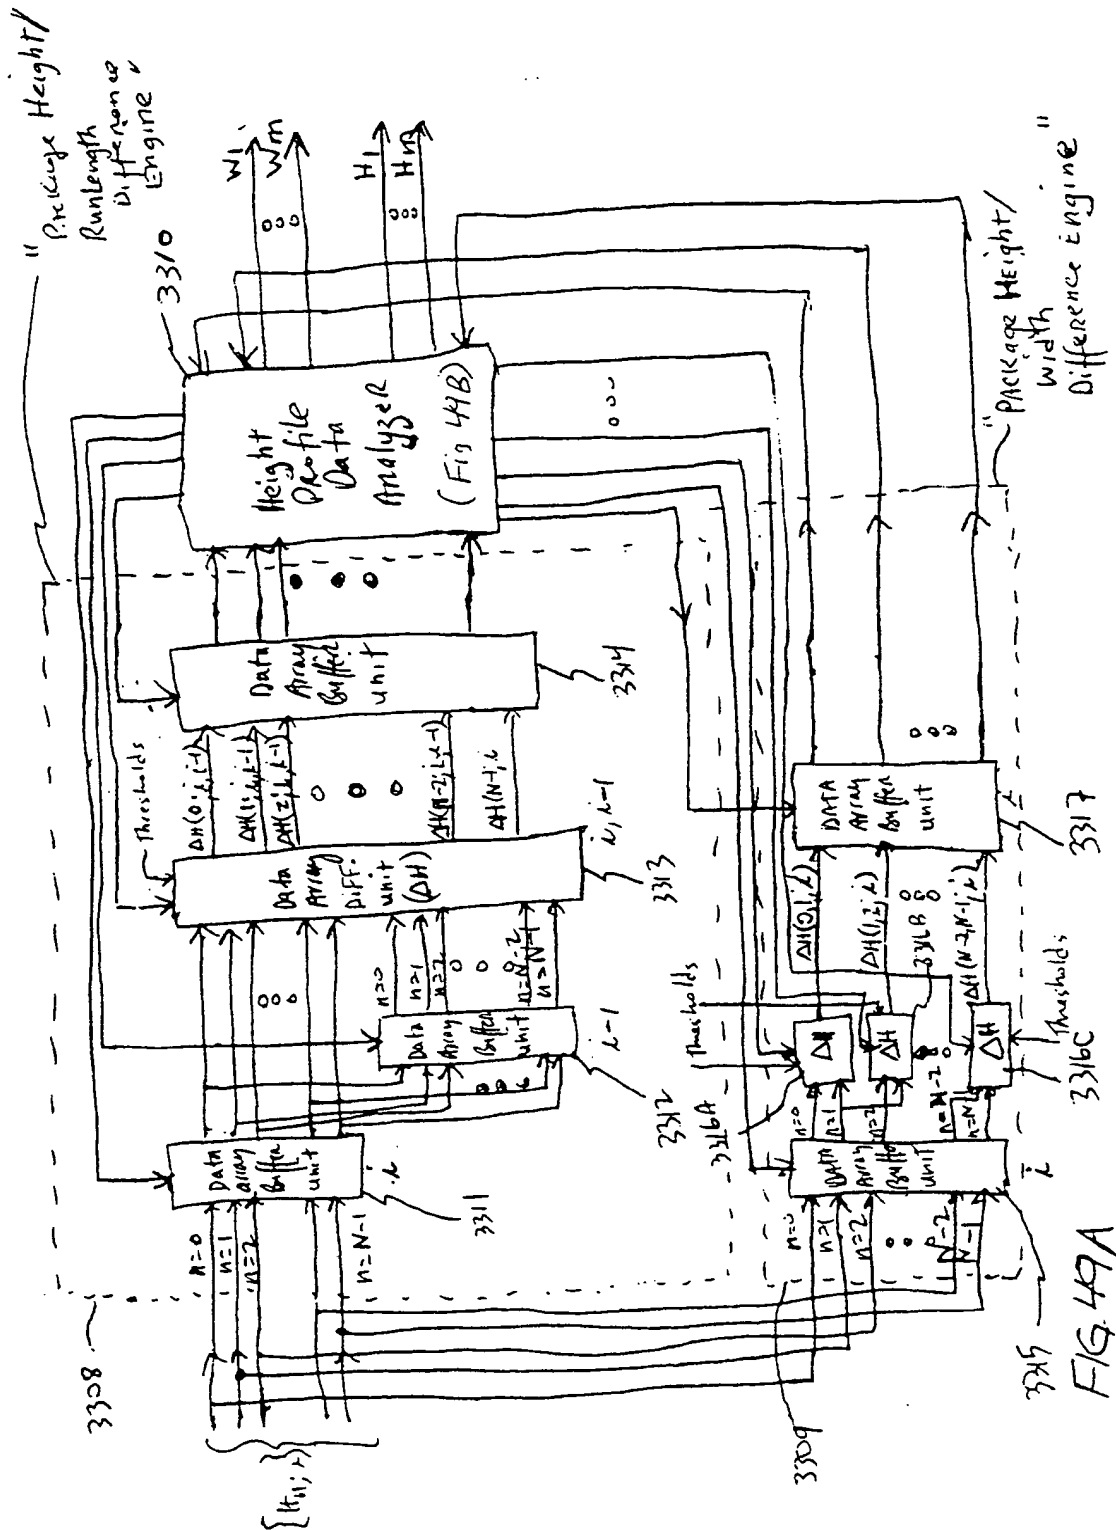 "Package Height/
RunLength
Difference
Engine"
3310
W1
Wm
H1
Hn
Height
Profile
Data
Analyzer
(Fig 49B)
Thresholds
ΔH(0;i,i-1)
ΔH(1;i,i-1)
ΔH(2;i,i-1)
ΔH(N-2;i,i-1)
ΔH(N-1;i
Data
Array
Buffer
unit
3314
Data
Array
Diff.
unit
(ΔH)
i,i-1
3313
n=0
n=1
n=2
n=N-2
n=N-1
Data
Array
Buffer
unit
i-1
3312
Data
array
Buffer
unit
i
3311
n=0
n=1
n=2
n=N-1
3308
"PACKAGE HEIGHT/
Width
Difference Engine"
DATA
Array
Buffer
unit
3317
ΔH(0,1,i)
ΔH(1,2;i)
3316B
ΔH(N-2,N-1,i)
Thresholds
Thresholds
ΔH
ΔH
ΔH
3316A
3316C
n=0
n=1
n=2
n=N-2
n=N-1
DATA
Array
Buffer
unit
i
3315
n=0
n=1
n=2
N-2
N-1
3309
FIG. 49A